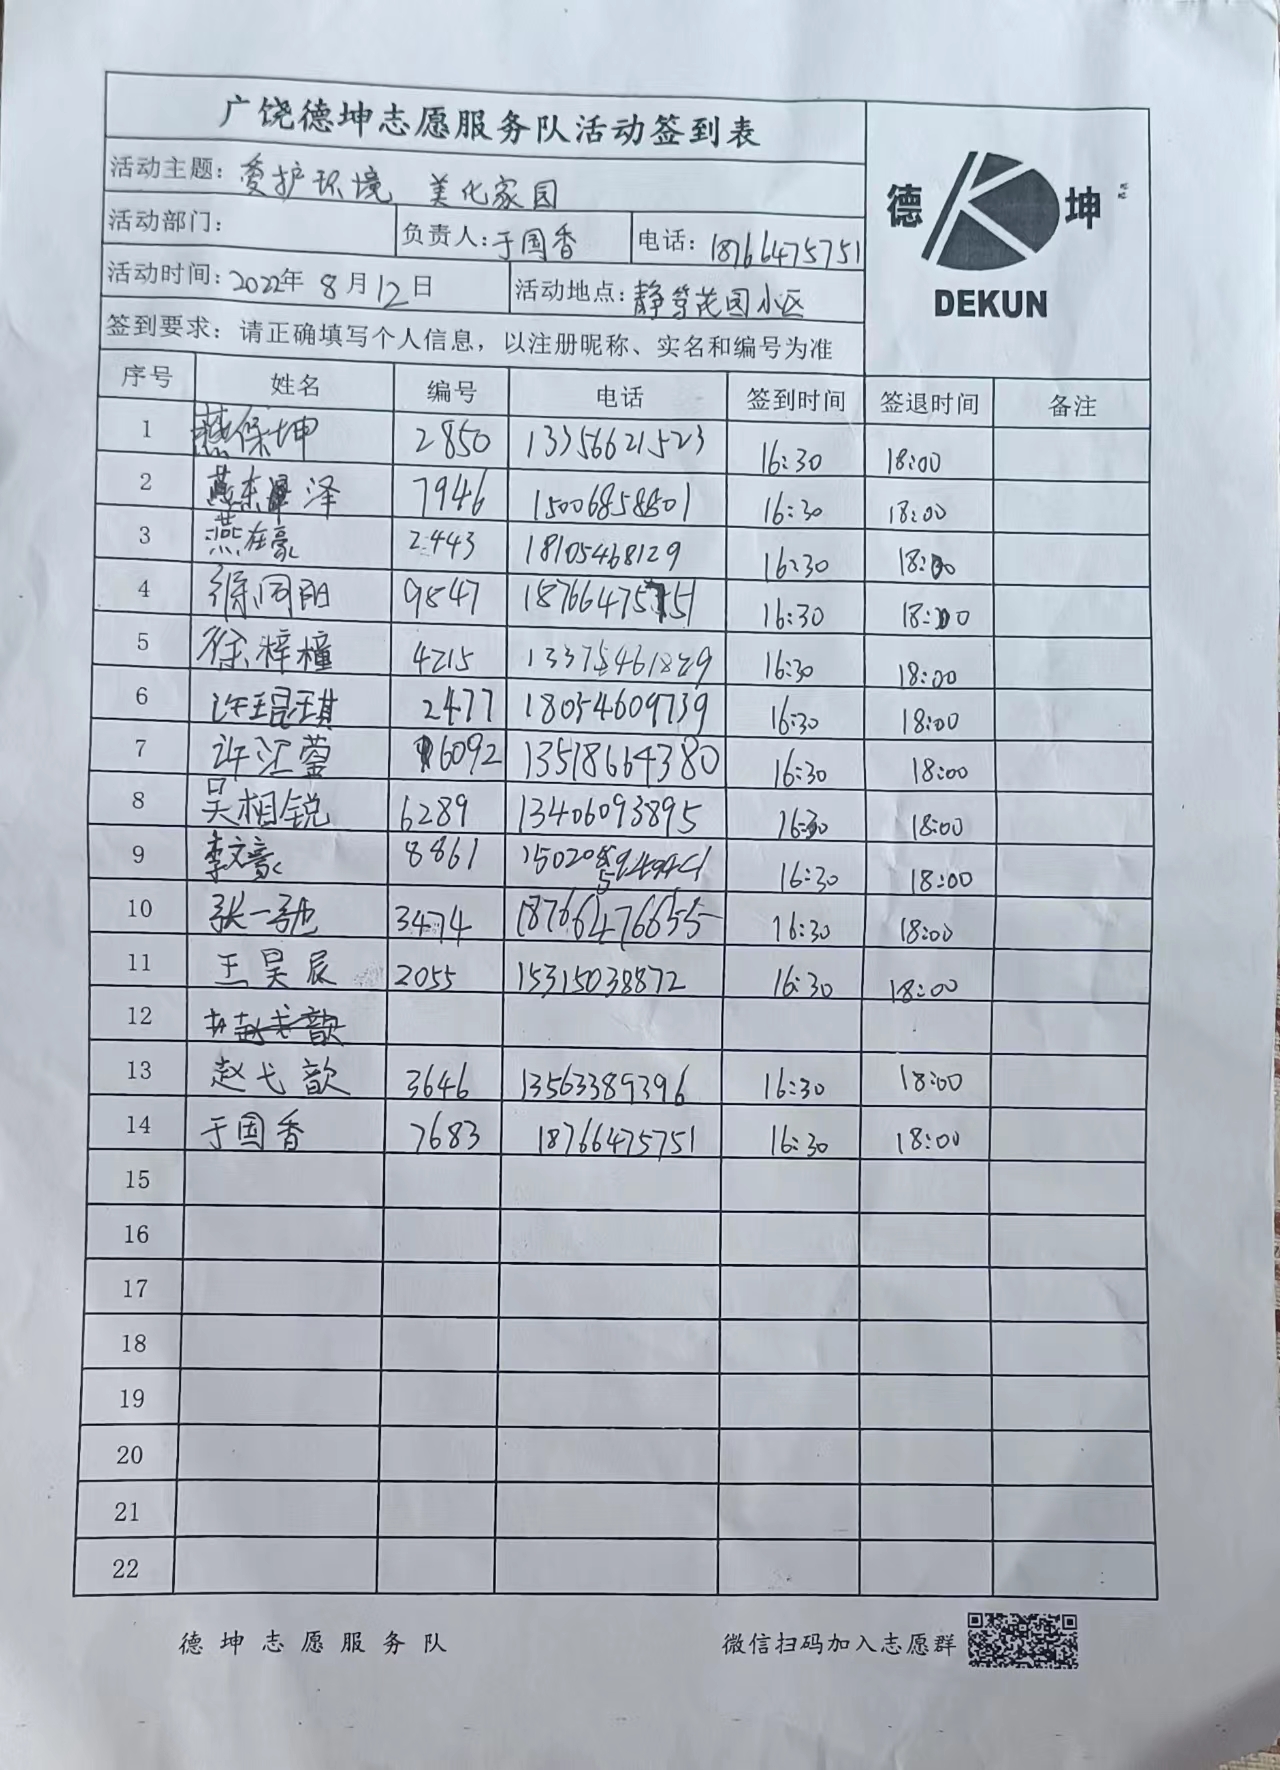 广饶德坤志愿服务队活动签到表
活动主题：爱护环境 美化家园
德 坤
DEKUN
活动部门： 负责人：于国香 电话：18766475751
活动时间：2022年 8月12日 活动地点：静等花园小区
签到要求：请正确填写个人信息，以注册昵称、实名和编号为准
序号 姓名 编号 电话 签到时间 签退时间 备注
1 燕保坤 2850 13356621523 16:30 18:00
2 燕东泽 7946 15006858501 16:30 18:00
3 燕在豪 2443 18105468129 16:30 18:00
4 徐同阳 9847 18766475751 16:30 18:00
5 徐梓橦 4215 13375461829 16:30 18:00
6 许琨琪 2477 18054609739 16:30 18:00
7 许江蓥 6092 13518664380 16:30 18:00
8 吴相锐 6289 13406093895 16:30 18:00
9 李文豪 8861 16:30 18:00
10 张一驰 3474 18766476655 16:30 18:00
11 王昊辰 2055 15315038872 16:30 18:00
12
13 赵弋歆 3646 13563389396 16:30 18:00
14 于国香 7683 18766475751 16:30 18:00
15
16
17
18
19
20
21
22
德坤志愿服务队 微信扫码加入志愿群